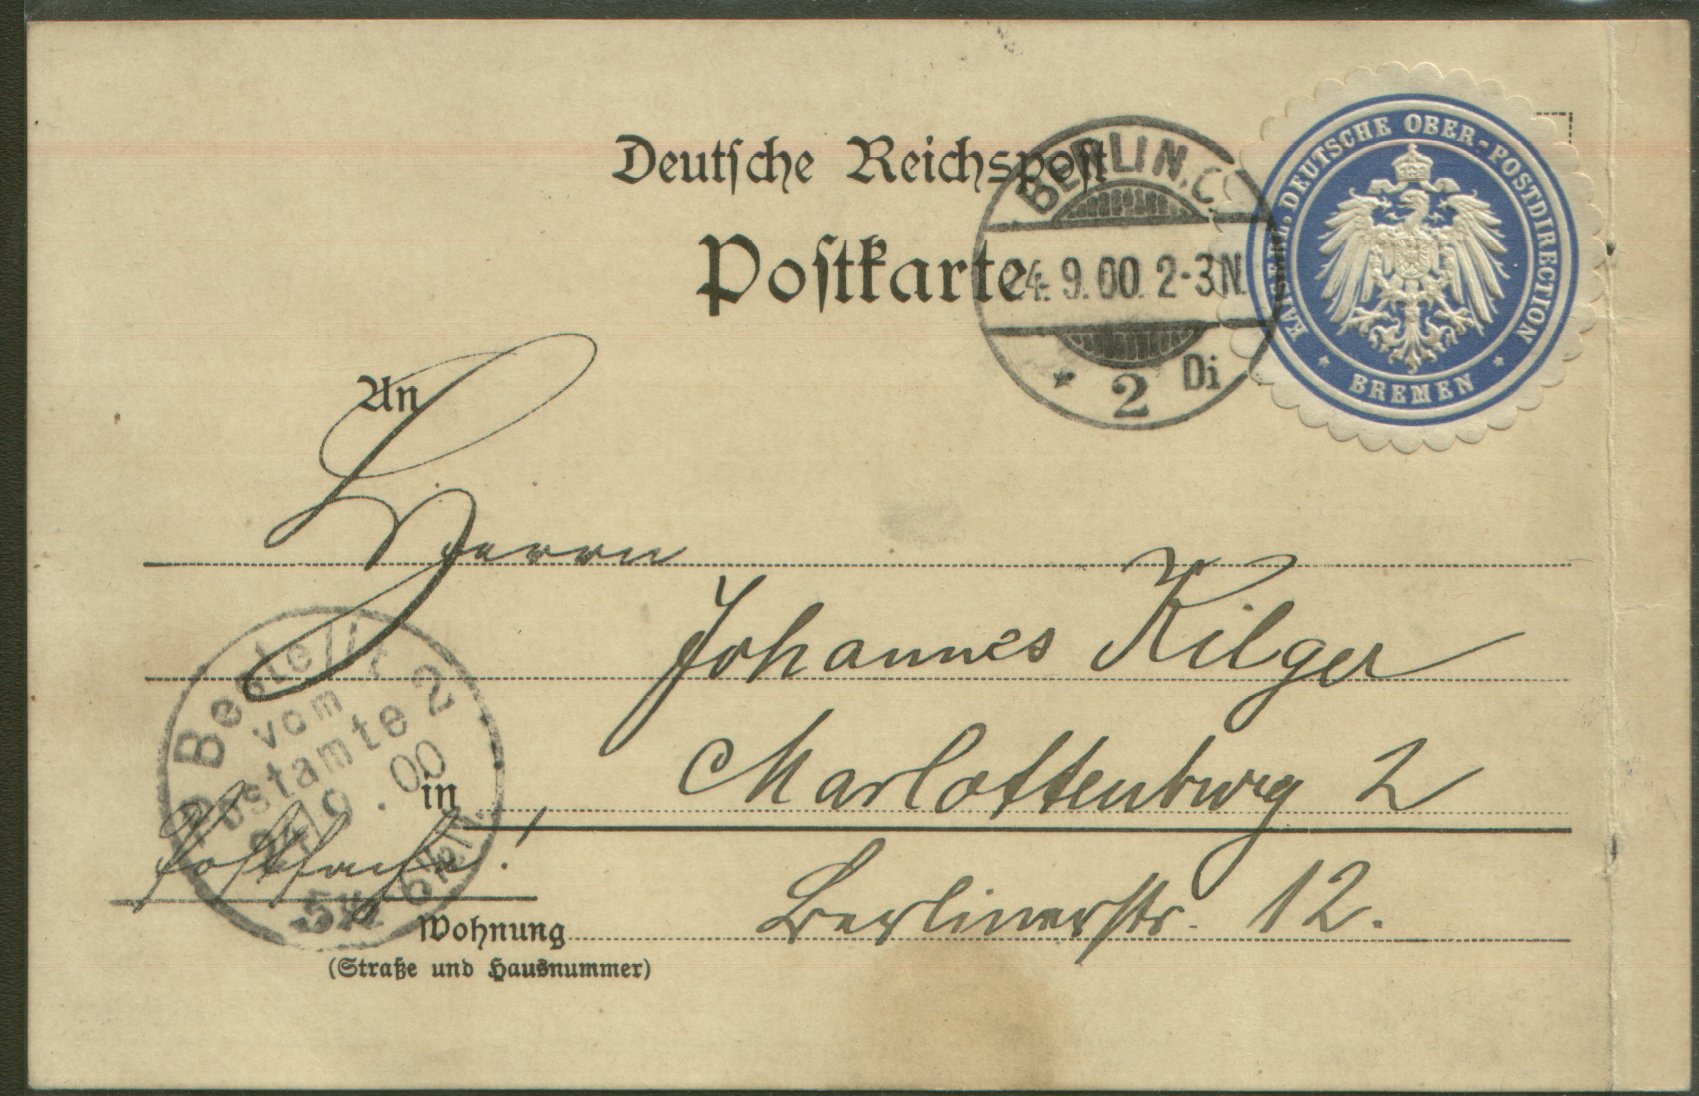 Deutsche Reichspost
Postkarte
BERLIN, C.
24. 9. 00. 2-3N.
* 2 Di
KAISERL. DEUTSCHE OBER-POSTDIRECTION
* BREMEN *
An
Herrn
Johannes Kilger
Charlottenburg 2
in
Berlinerstr. 12.
Wohnung
(Straße und Hausnummer)
Bestellt
vom
Postamte 2
24/9.00
Postsache!